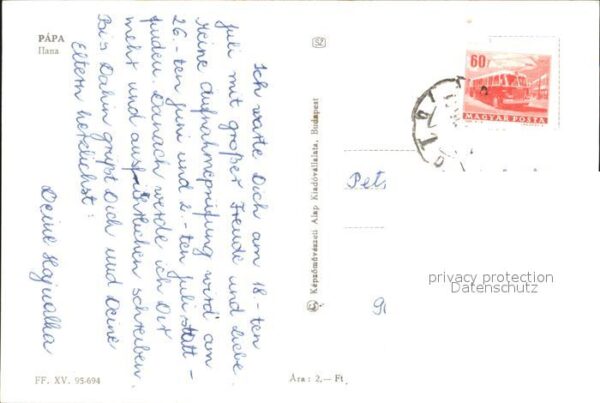 PÁPA
Ilana
Ich warte Dich am 18-ten
Juli mit großer Freude und Liebe.
Meine Aufnahmeprüfung wird am
26.-ten Juni und 2.-ten Juli statt-
finden. Danach werde ich Dir
mehr und ausführlichen schreiben.
Bis Dahin grüßt Dich und Deine
Eltern herzlichst:
Deine Hajnalka
FF. XV. 95-694
Ára: 2,— Ft
Képzőművészeti Alap Kiadóvállalata, Budapest
60f
MAGYAR POSTA
Pet
privacy protection
Datenschutz